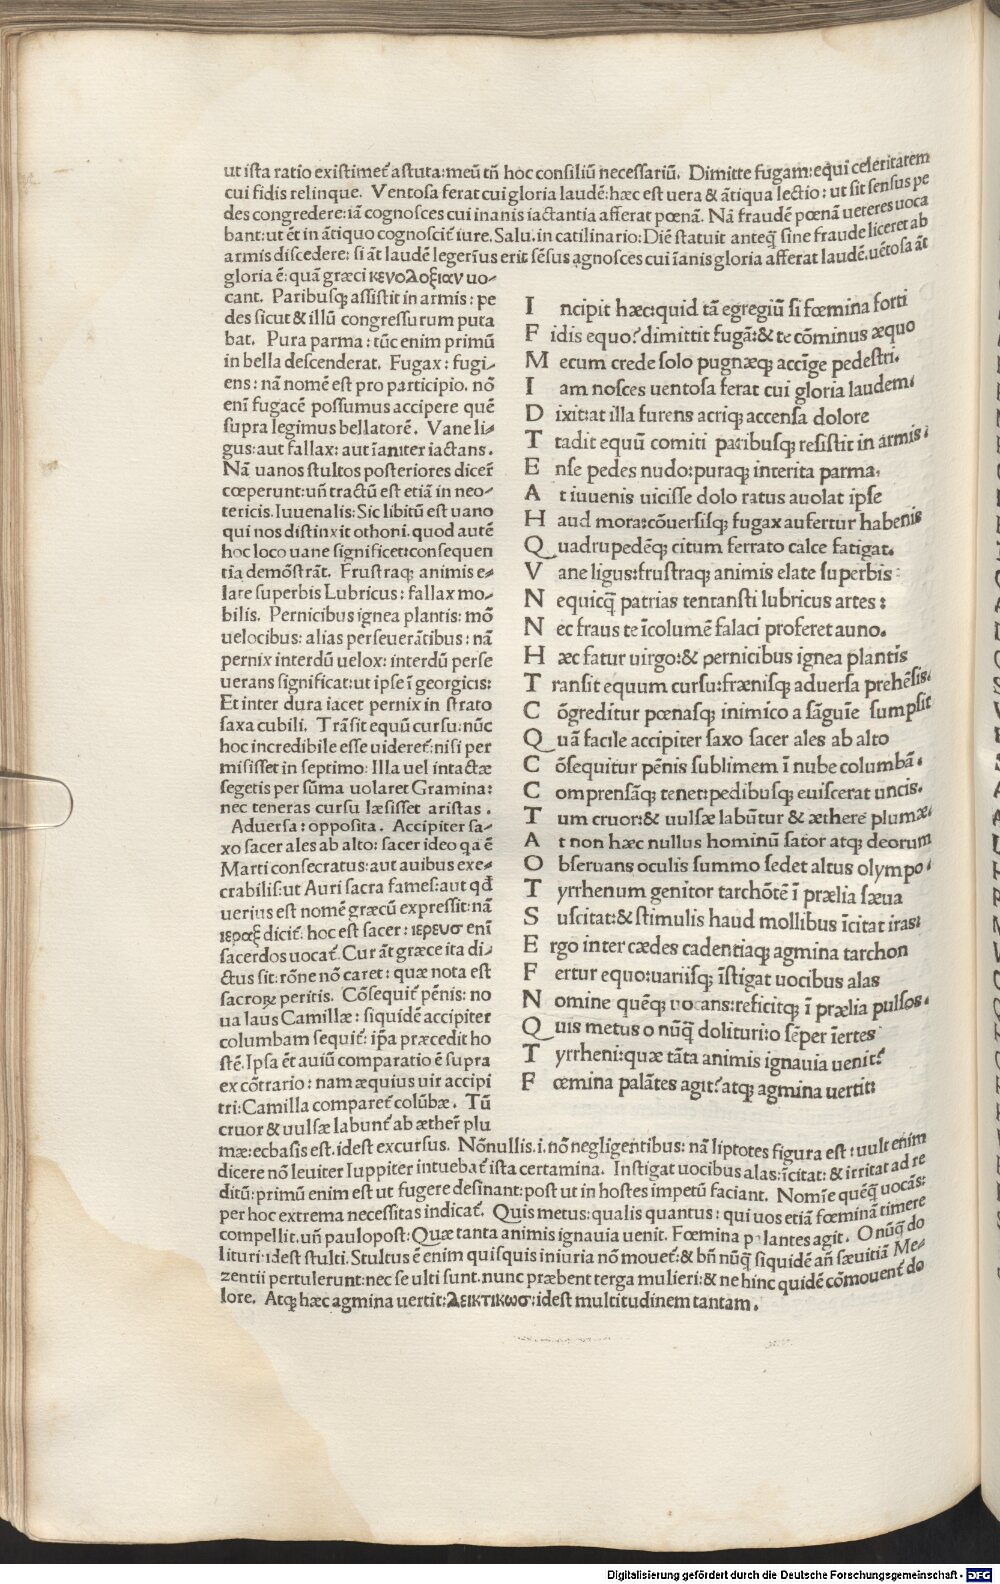 ut ista ratio existimet᷑ astuta:meũ tñ hoc consiliũ necessariũ. Dimitte fugam:equi celeritatem
cui fidis relinque. Ventosa ferat cui gloria laudẽ:hæc est uera & ãtiqua lectio: ut sit sensus pe
des congredere:iã cognosces cui inanis iactantia afferat pœnã. Nã fraudẽ pœnã ueteres uoca
bant:ut ẽt in ãtiquo cognoscit᷑ iure. Salu. in catilinario:Diẽ statuit anteq̃ sine fraude liceret ab
armis discedere: si ãt laudẽ legerius erit sẽsus agnosces cui ĩanis gloria afferat laudẽ.uẽtosa ãt
gloria ẽ:quã græci κενολοξιαν uo-
cant. Paribusq; assistit in armis: pe
des sicut & illũ congressurum puta
bat. Pura parma: tũc enim primũ
in bella descenderat. Fugax: fugi-
ens: nã nomẽ est pro participio. nõ
enĩ fugacẽ possumus accipere quẽ
supra legimus bellatorẽ. Vane li-
gus:aut fallax: aut ĩaniter iactans.
Nã uanos stultos posteriores dicer̃
cœperunt:uñ tractũ est etiã in neo-
tericis. Iuuenalis: Sic libitũ est uano
qui nos distinxit othoni. quod autẽ
hoc loco uane significet:consequen
tia demõstrãt. Frustraq; animis e-
late superbis Lubricus: fallax mo-
bilis. Pernicibus ignea plantis: mõ
uelocibus: alias perseuerãtibus: nã
pernix interdũ uelox: interdũ perse
uerans significat:ut ipse ĩ georgicis:
Et inter dura iacet pernix in strato
saxa cubili. Trãsit equũ cursu: nũc
hoc incredibile esse uideret᷑: nisi per
misisset in septimo: Illa uel intactæ
segetis per sũma uolaret Gramina:
nec teneras cursu læsisset aristas.
Aduersa: opposita. Accipiter sa-
xo sacer ales ab alto: sacer ideo qa ẽ
Marti consecratus: aut auibus exe-
crabilis:ut Auri sacra fames:aut qđ
uerius est nomẽ græcũ expressit: nã
ιεραξ dicit᷑. hoc est sacer: ιερευσ enĩ
sacerdos uocat᷑. Cur ãt græce ita di-
ctus sit: rõne nõ caret: quæ nota est
sacroꝝ peritis. Cõsequit᷑ pẽnis: no
ua laus Camillæ: siquidẽ accipiter
columbam sequit᷑: ip̃a præcedit ho
stẽ. Ipsa ẽt auiũ comparatio ẽ supra
ex cõtrario: nam æquius uir accipi
tri: Camilla comparet᷑ colũbæ. Tũ
cruor & uulsæ labunt᷑ ab æther̃ plu
I ncipit hæc:quid tã egregiũ si fœmina forti
F idis equo? dimittit fugã:& te cõminus æquo
M ecum crede solo pugnæq; accĩge pedestri.
I am nosces uentosa ferat cui gloria laudem.
D ixit:at illa furens acriq; accensa dolore
T radit equũ comiti paribusq; resistit in armis.
E nse pedes nudo:puraq; interita parma.
A t iuuenis uicisse dolo ratus auolat ipse
H aud mora:cõuersisq; fugax aufertur habenis
Q uadrupedẽq; citum ferrato calce fatigat.
V ane ligus:frustraq; animis elate superbis:
N equicq̃ patrias tentansti lubricus artes:
N ec fraus te ĩcolumẽ falaci proferet auno.
H æc fatur uirgo:& pernicibus ignea plantis
T ransit equum cursu:frænisq; aduersa prehẽsis.
C õgreditur pœnasq; inimico a sãguĩe sumpsit
Q uã facile accipiter saxo sacer ales ab alto
C õsequitur pẽnis sublimem ĩ nube columbã.
C omprensãq; tenet:pedibusq; euiscerat uncis.
T um cruor:& uulsæ labũtur & æthere plumæ.
A t non hæc nullus hominũ sator atq; deorum
O bseruans oculis summo sedet altus olympo.
T yrrhenum genitor tarchõtẽ ĩ prælia sæua
S uscitat:& stimulis haud mollibus ĩcitat iras:
E rgo inter cædes cadentiaq; agmina tarchon
F ertur equo:uariisq; ĩstigat uocibus alas
N omine quẽq; uocans:reficitq; ĩ prælia pulsos.
Q uis metus o nũq̃ dolituri:o sẽper ĩertes
T yrrheni:quæ tãta animis ignauia uenit?
F œmina palãtes agit? atq; agmina uertit:
mæ:ecbasis est. idest excursus. Nõnullis.i. nõ negligentibus: nã liptotes figura est: uult enim
dicere nõ leuiter Iuppiter intuebat᷑ ista certamina. Instigat uocibus alas: ĩcitat: & irritat ad re
ditũ: primũ enim est ut fugere desinant: post ut in hostes impetũ faciant. Nomĩe quẽq̃ uocãs:
per hoc extrema necessitas indicat᷑. Quis metus: qualis quantus: qui uos etiã fœminã timere
compellit. uñ paulopost: Quæ tanta animis ignauia uenit. Fœmina palantes agit. O nũq̃ do
lituri: idest stulti. Stultus ẽ enim quisquis iniuria nõ mouet᷑: & bñ nũq̃ siquidẽ añ sæuitiã Me-
zentii pertulerunt: nec se ulti sunt. nunc præbent terga mulieri: & ne hinc quidẽ cõmouent᷑ do
lore. Atq; hæc agmina uertit: λεικτικωσ: idest multitudinem tantam.
Digitalisierung gefördert durch die Deutsche Forschungsgemeinschaft - DFG